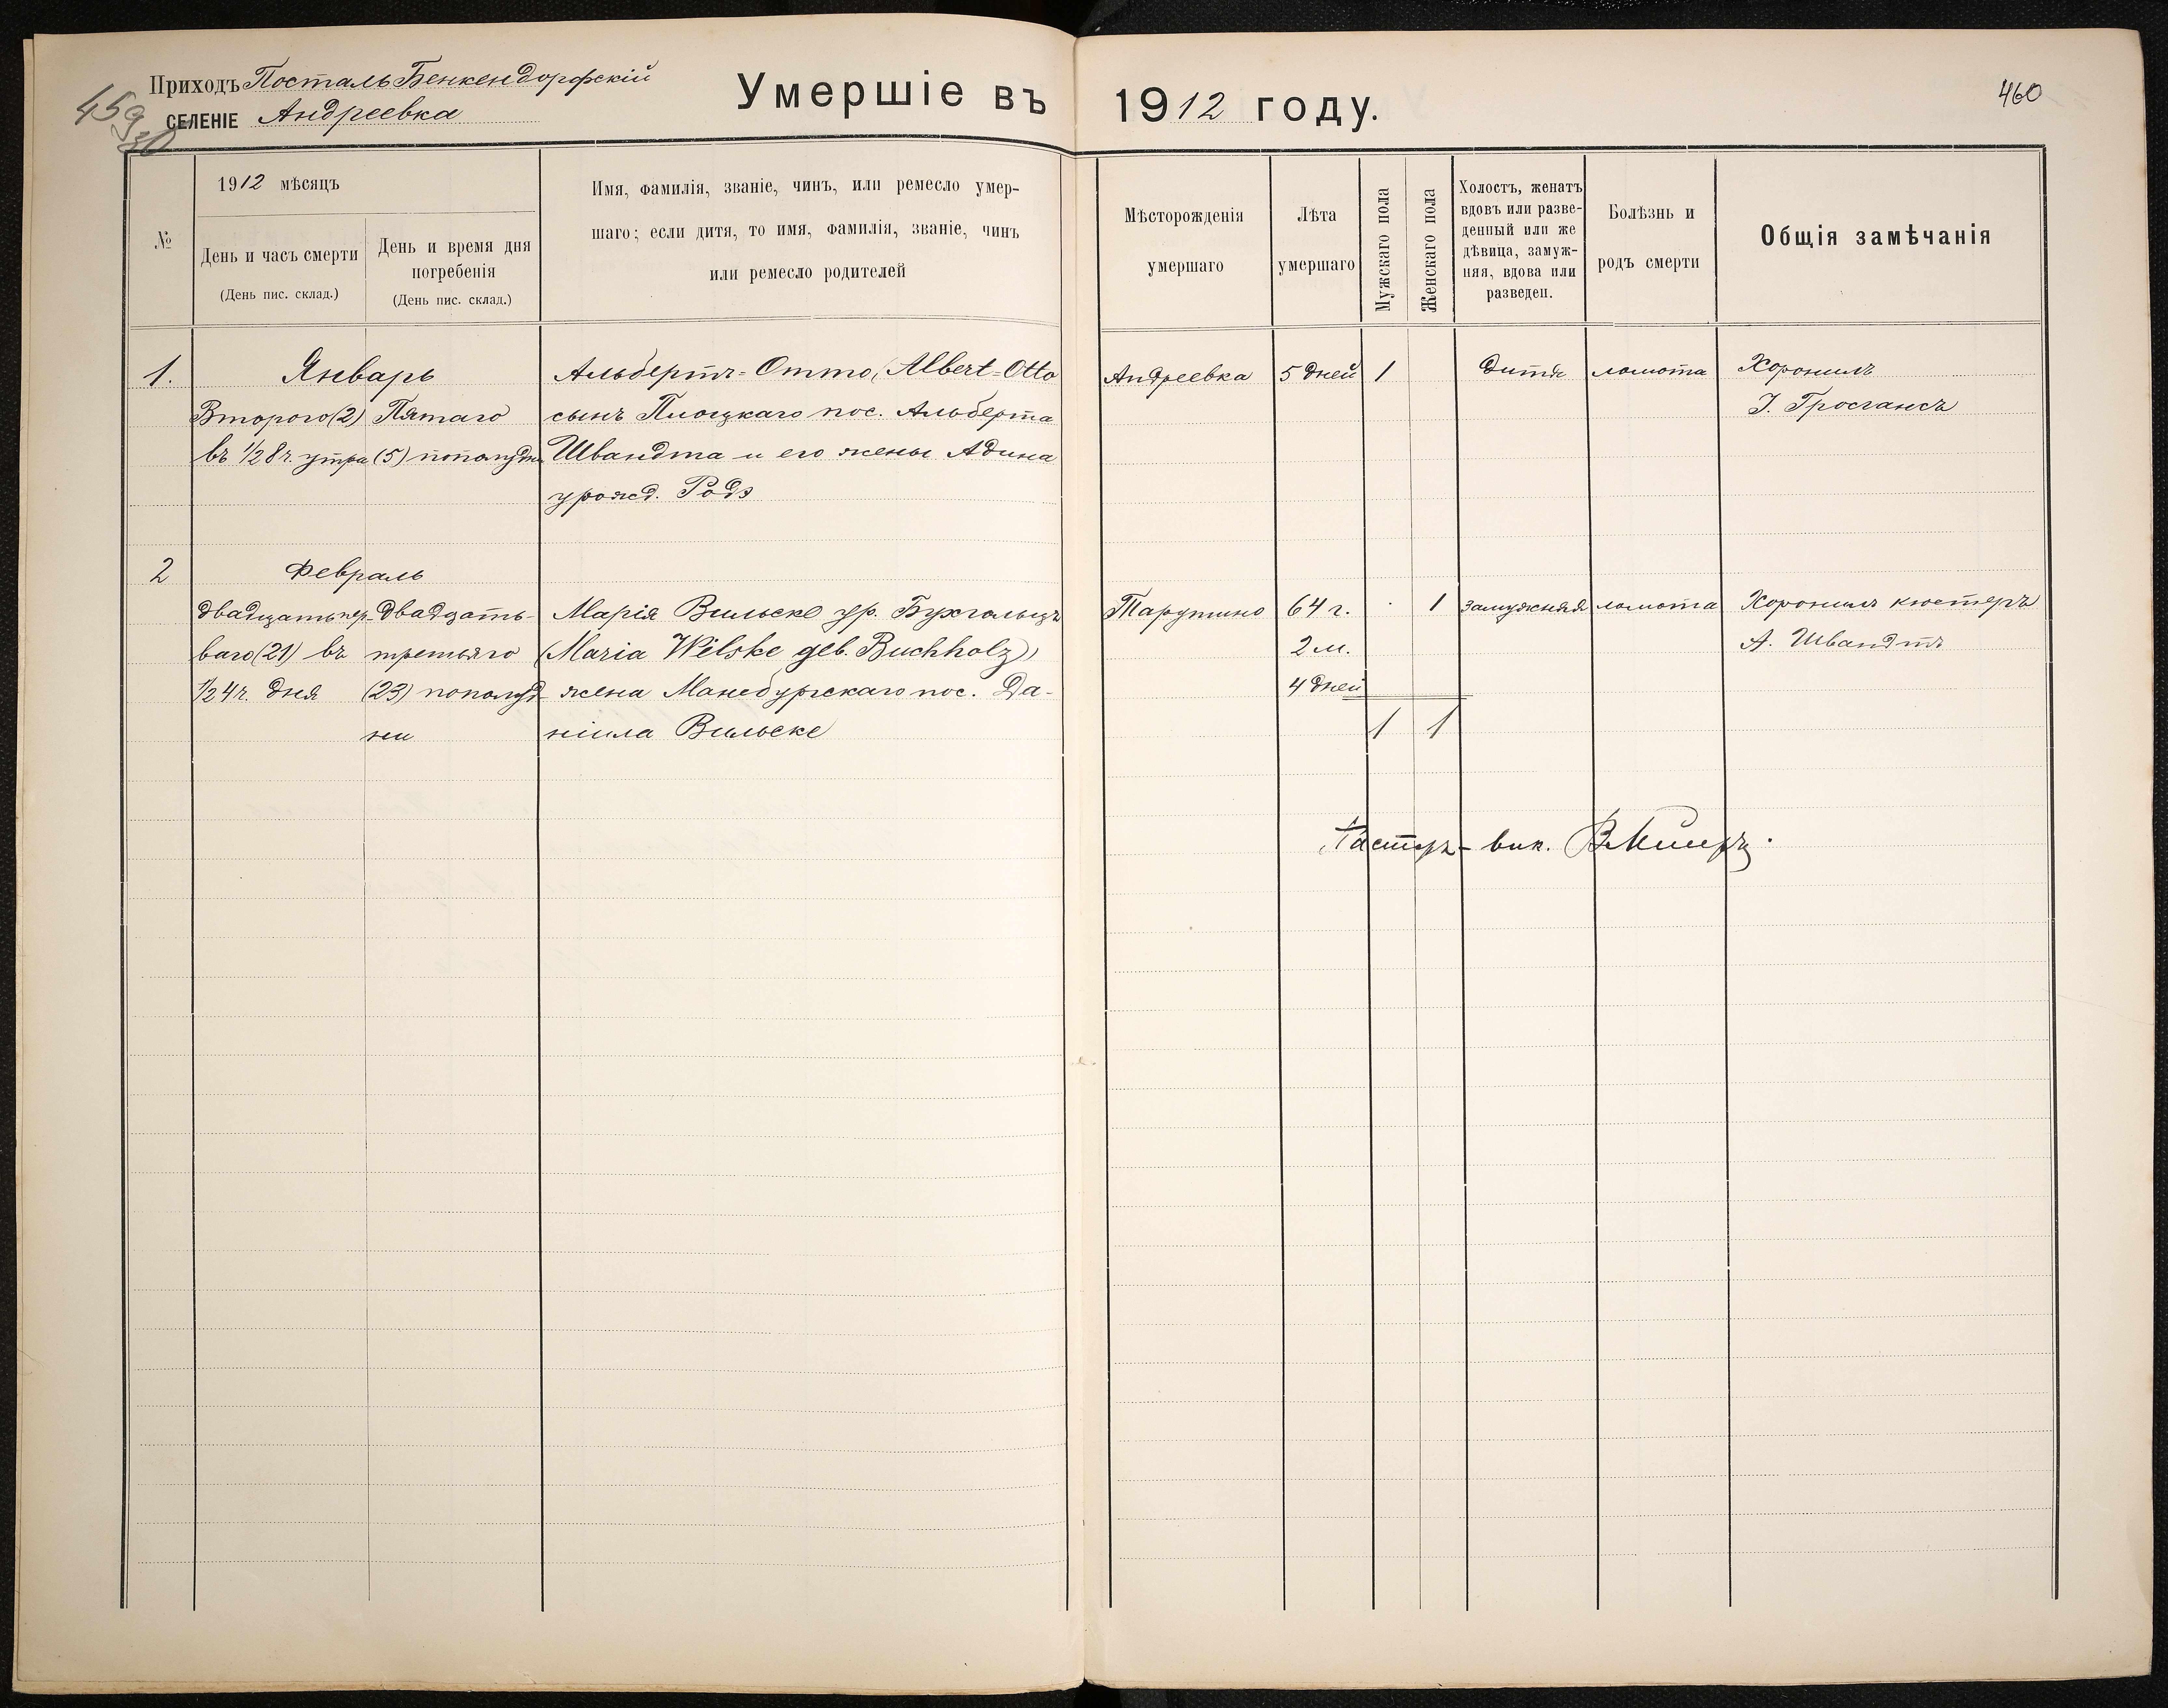 Приходъ Посталь Бенкендорфскій
СЕЛЕНІЕ Андреевка
459
30
Умершіе въ 1912 году.
460
№
1912 мѣсяцъ
День и часъ смерти
(День пис. склад.)
День и время дня
погребенія
(День пис. склад.)
Имя, фамилія, званіе, чинъ, или ремесло умер-
шаго; если дитя, то имя, фамилія, званіе, чинъ
или ремесло родителей
Мѣсторожденія
умершаго
Лѣта
умершаго
Мужскаго пола
Женскаго пола
Холостъ, женатъ
вдовъ или разве-
денный или же
дѣвица, замуж-
няя, вдова или
разведен.
Болѣзнь и
родъ смерти
Общія замѣчанія
1.
Январь
Второго (2)
въ 1/2 8 ч. утра
Пятаго
(5) пополудни
Альбертъ-Отто, (Albert-Otto
сынъ Плоцкаго пос. Альберта
Швандта и его жены Адина
урожд. Родэ
Андреевка
5 дней
1
дитя
ломота
Хоронилъ
І. Гросгансъ
2
Февраль
двадцать пер-
ваго (21) въ
1/2 4 ч. дня
двадцать-
третьяго
(23) пополуд-
ни
Марія Вильске ур. Бухгольцъ
(Maria Wilske geb. Buchholz)
жена Мансбургскаго пос. Да-
ніила Вильске
Тарутино
64 г.
2 м.
4 дней
1
замужняя
ломота
Хоронилъ кюстеръ
А. Швандтъ
1 1
Пасторъ-вик.